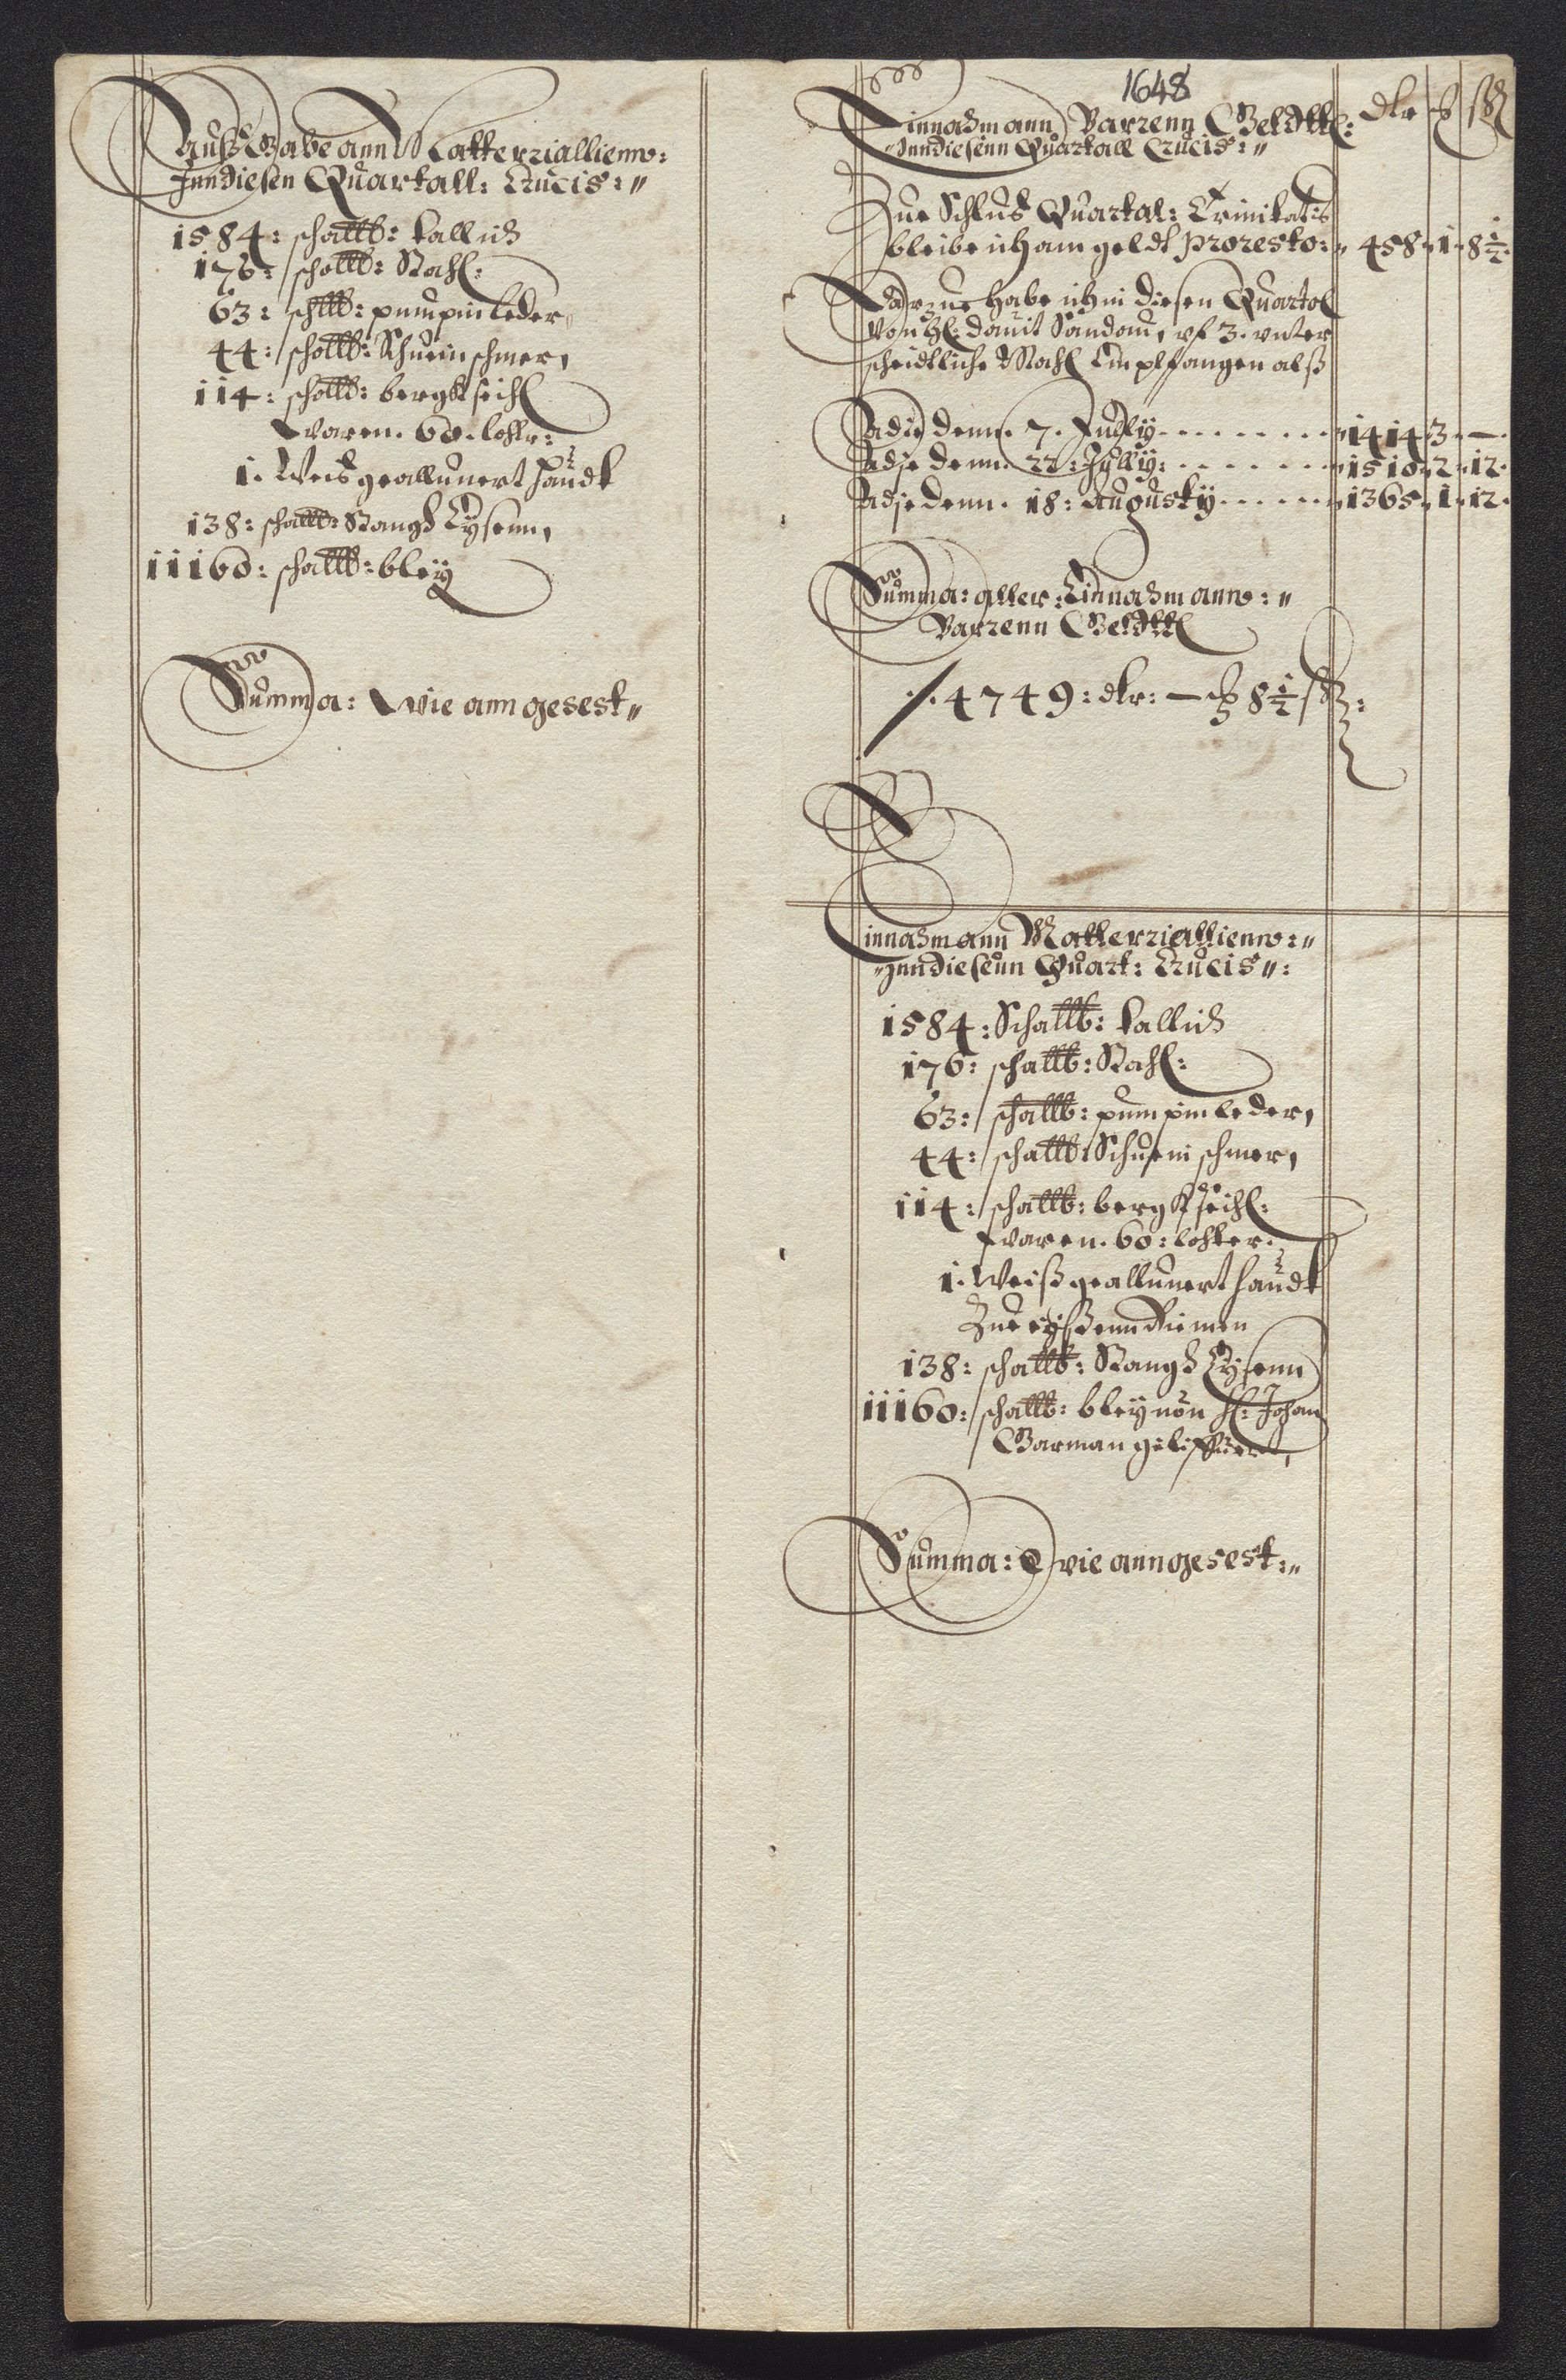 Außgabe ann Matterziallienn:
Jnn diesen Quartall: Crucis:"
1584: schallb: kallich
176: schallb: Stahl:
63: schallb: pumpin leder
44: schallb: Schuein schmer,
114: schallb: bergk seihl
waren. 60. lohtr:
1. Weis geallunert haudt
138: schallb: Stangd Eysenn,
11160: schallb: bleÿ
Summa: Wie ann gesest"
1648
Einnahm ann Barzenn Geldtt:
dlr ß
Jnn diesenn Quartall Crucis:"
Zue Schlus Quartal: Trinitatis
bleibe ich am geldt pro resto: 458 1 8½
Darzue habe ich in diesen Quartal
von H: dauit Sandow, vf 3. vnter
scheidtliche Mahl Emplfangen alß
Adie denn. 7. Jullÿ 1414 3 —
Adje denn. 22: Jullÿ: 1510 2 12
Adje denn. 18: Augustÿ 1365 1 12
Summa: aller: Einnahm ann:"
Barzenn Geldtt
4749: dlr: — 8½ ß:
Einnahm ann Matterziallienn:"
"Jnn diesenn Quart: Crucis":
1584: Schallb: kallich
176: schallb: Stahl:
63: schallb: pumpin leder,
44: schallb: Schuein schmer,
114: schallb: berg seihl:
waren. 60: lohter.
1. Weiß geallunert haudt
Zue Riemen
138: schallb: Stangd Eysenn
11160: schallb: bleÿ von H: Johan
Garman geliffuert,
Summa: Wie ann gesest:"